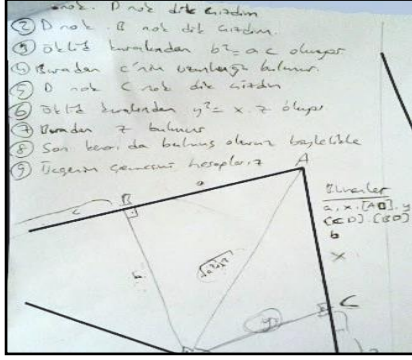 nok. D nok dik çizdim
② D nok. B nok dik çizdim.
③ öklid kuralından b² = a c oluyor
④ Buradan c'nin uzunluğu bulunur.
⑤ D nok C nok dik çizdim
⑥ öklid kuralından y² = x . z oluyor
⑦ Buradan z bulunur
⑧ Son kenarı da bulmuş oluruz böylelikle
⑨ Üçgenin çevresini hesaplarız
A
a
B
c
b
y
C
z
a, x, [AD], y
[CD], [BD]
b
x